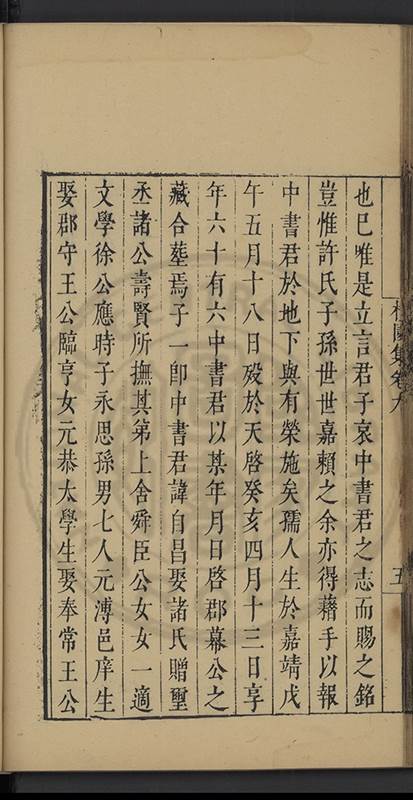 也已唯是立言君子哀中書君之志而賜之銘
豈惟許氏子孫世世嘉賴之余亦得藉手以報
中書君於地下與有榮施矣孺人生於嘉靖戊
午五月十八日殁於天啓癸亥四月十三日享
年六十有六中書君以某年月日啓郡幕公之
藏合塟焉子一卽中書君諱自昌娶諸氏贈璽
丞諸公壽賢所撫其弟上舍舜臣公女女一適
文學徐公應時子永思孫男七人元溥邑庠生
娶郡守王公臨亨女元恭太學生娶奉常王公